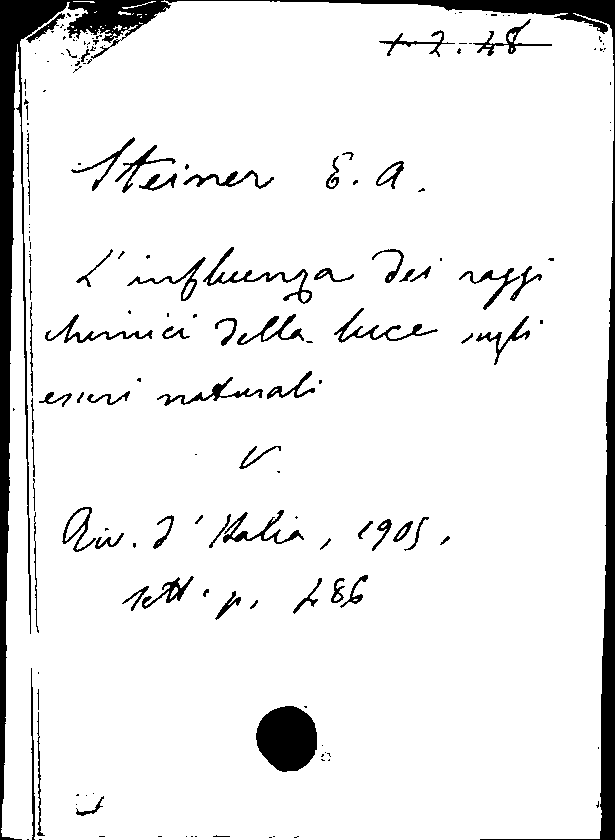 1-2.48
Steiner E. A.
L'influenza dei raggi
chimici della luce sugli
esseri naturali
V.
Riv. d'Italia, 1905,
sett. p. 486